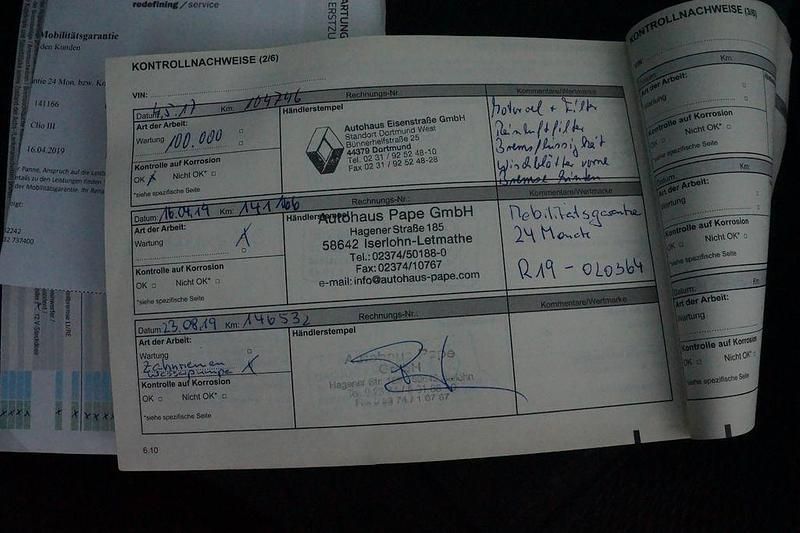 redefining / service
Mobilitätsgarantie
den Kunden
ntie 24 Mon. bzw. Ko
141166
Clio III
16.04.2019
32 737400
KONTROLLNACHWEISE (2/6)
VIN:
Datum: 4.5.17 Km: 104746 Rechnungs-Nr.: Kommentare/Wertmarke
Art der Arbeit:
Wartung 100.000
Kontrolle auf Korrosion
OK x Nicht OK*
*siehe spezifische Seite
Händlerstempel
Autohaus Eisenstraße GmbH
Standort Dortmund West
Bünnerhelfstraße 25
44379 Dortmund
Tel. 02 31 / 92 52 48-10
Fax 02 31 / 92 52 48-28
Motoroel + Filter
Reinluftfilter
Bremsflüssigkeit
Wischblätter vorne
Bremse hinten
Datum: 16.04.19 Km: 141166 Rechnungs-Nr.: Kommentare/Wertmarke
Art der Arbeit:
Wartung X
Kontrolle auf Korrosion
OK Nicht OK*
*siehe spezifische Seite
Händlerstempel
Autohaus Pape GmbH
Hagener Straße 185
58642 Iserlohn-Letmathe
Tel.: 02374/50188-0
Fax: 02374/10767
e-mail: info@autohaus-pape.com
Mobilitätsgarantie
24 Monate
R19 - 020364
Datum: 23.08.19 Km: 146532 Rechnungs-Nr.: Kommentare/Wertmarke
Art der Arbeit:
Wartung
Zahnriemen X
Wasserpumpe
Kontrolle auf Korrosion
OK Nicht OK*
*siehe spezifische Seite
Händlerstempel
Autohaus Pape
GmbH
6.10
KONTROLLNACHWEISE (3/6)
VIN:
Datum: Km:
Art der Arbeit:
Wartung
Kontrolle auf Korrosion
OK Nicht OK*
*siehe spezifische Seite
Datum: Km:
Art der Arbeit:
Wartung
Kontrolle auf Korrosion
OK Nicht OK*
*siehe spezifische Seite
Datum: Km:
Art der Arbeit:
Wartung
Kontrolle auf Korrosion
OK Nicht OK*
*siehe spezifische Seite